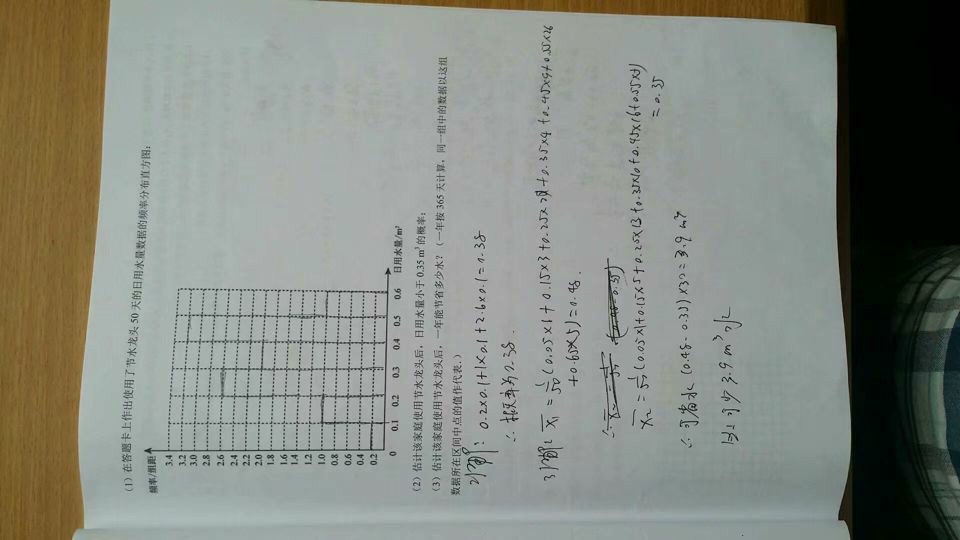 (1) 在答题卡上作出使用了节水龙头 50 天的日用水量数据的频率分布直方图:
频率/组距
3.4
3.2
3.0
2.8
2.6
2.4
2.2
2.0
1.8
1.6
1.4
1.2
1.0
0.8
0.6
0.4
0.2
0 0.1 0.2 0.3 0.4 0.5 0.6 日用水量/m³
(2) 估计该家庭使用节水龙头后,日用水量小于 0.35 m³ 的概率;
(3) 估计该家庭使用节水龙头后,一年能节省多少水?(一年按 365 天计算,同一组中的数据以这组
数据所在区间中点的值作代表.)
2) 解: 0.2×0.1+1×0.1+2.6×0.1=
∴ 概率为
3) 解: x₁ = 1/50 (0.05×1+0.15×3+0.25×2+0.35×4+0.45×9+0.55×26
+0.65×5)=0.48.
x₂ = 1/50 (0.05×1+0.15×5+0.25×13+0.35×10+0.45×16+0.55×5)
=0.35
∴ 可省水